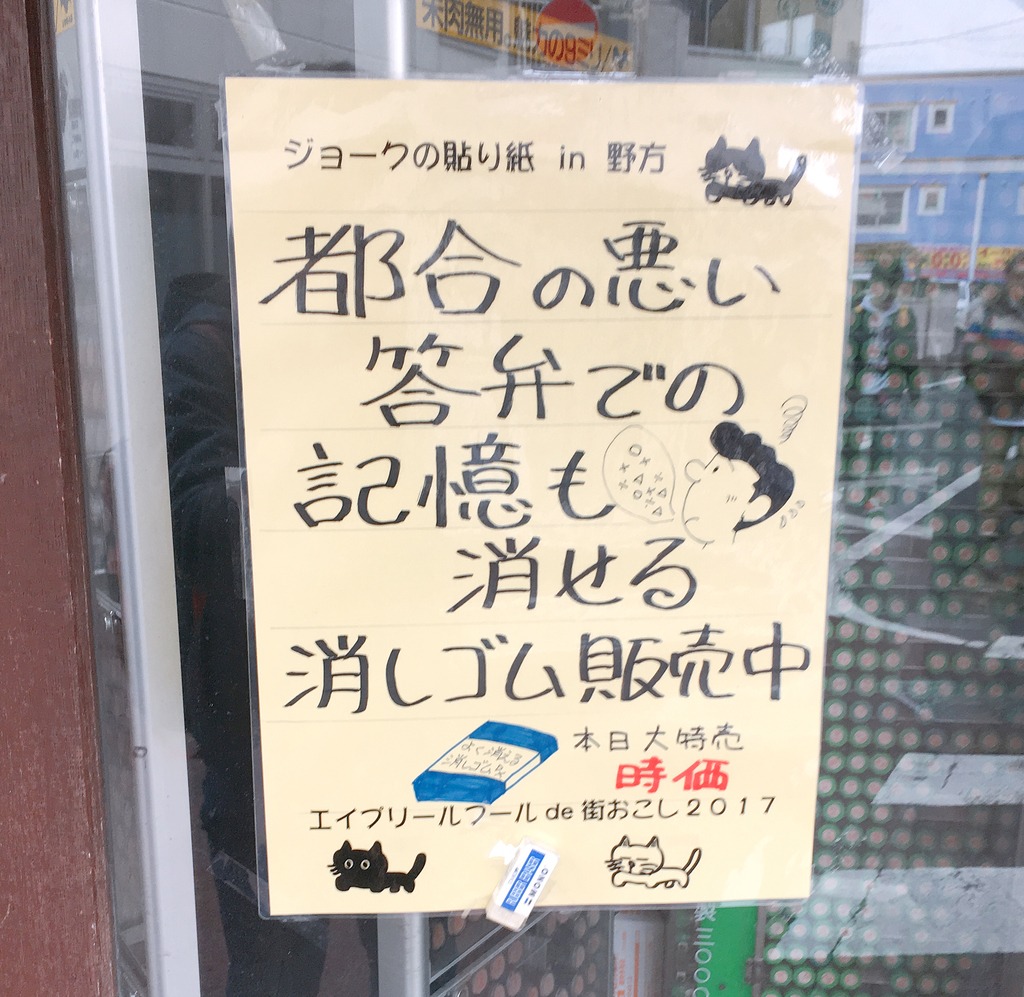 ジョークの貼り紙 in 野方
都合の悪い
答弁での
記憶も
消せる
消しゴム販売中
よく消える
消しゴム
本日大特売
時価
エイプリールフール de 街おこし2017
RUBBER ERASER
MONO